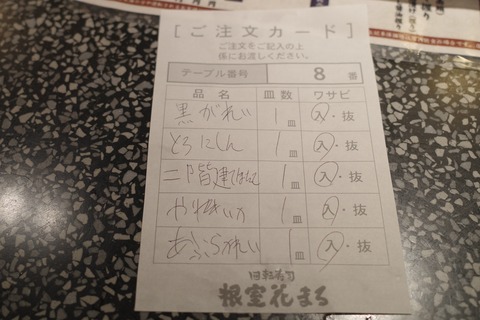 [ご注文カード]
ご注文をご記入の上
係にお渡しください。
テーブル番号 8 番
品名 皿数 ワサビ
黒がれい 1皿 入・抜
とろにしん 1皿 入・抜
二階建てほたて 1皿 入・抜
やりいか 1皿 入・抜
あぶらがれい 1皿 入・抜
回転寿司
根室花まる